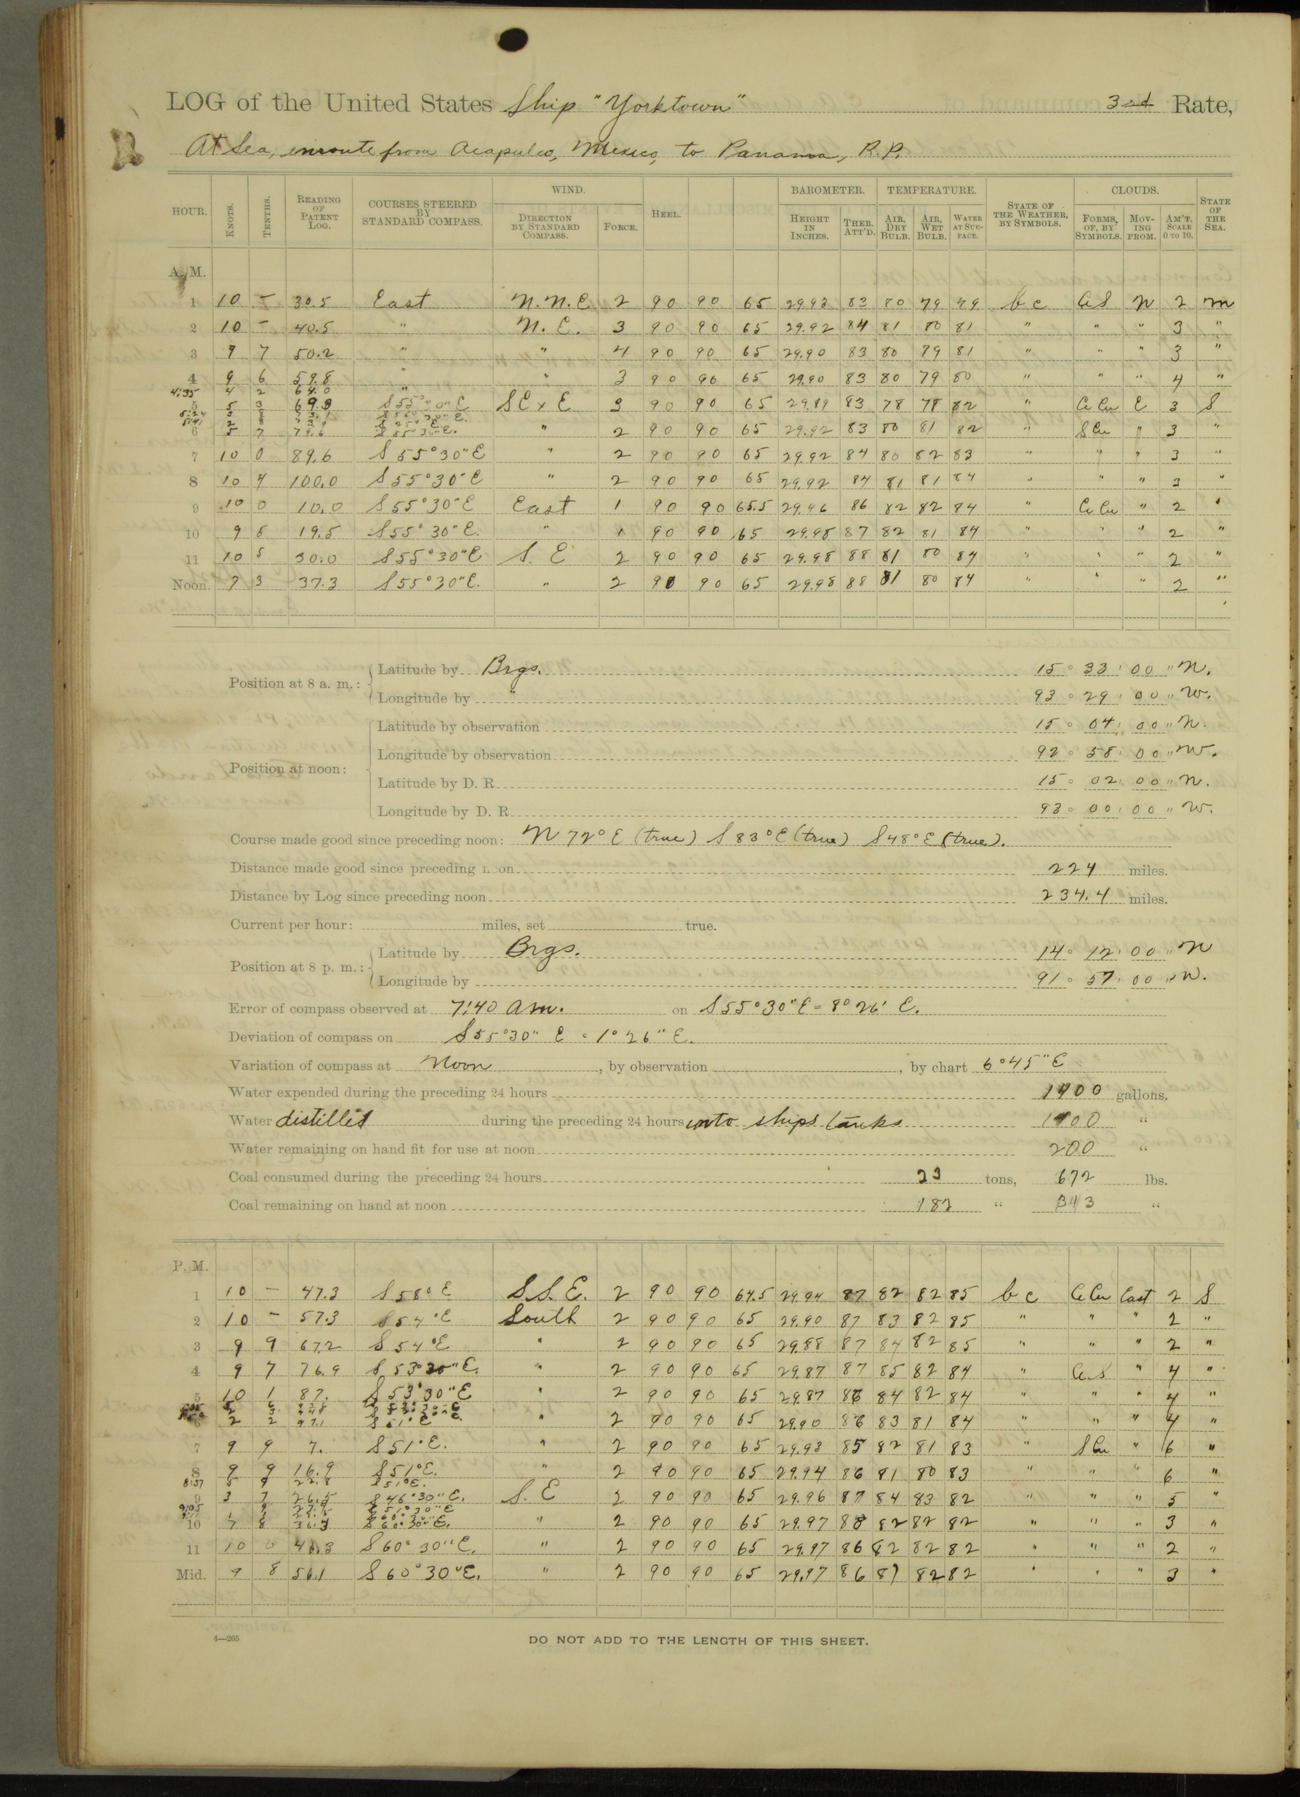 LOG of the United States Ship "Yorktown" 3rd Rate,
At Sea, enroute from Acapulco, Mexico, to Panama, R.P.
HOUR. KNOTS. TENTHS. READING OF PATENT LOG. COURSES STEERED BY STANDARD COMPASS. WIND. DIRECTION BY STANDARD COMPASS. FORCE. HEEL. BAROMETER. HEIGHT IN INCHES. THER. ATT'D. TEMPERATURE. AIR, DRY BULB. AIR, WET BULB. WATER AT SURFACE. STATE OF THE WEATHER, BY SYMBOLS. CLOUDS. FORMS, OF, BY SYMBOLS. MOVING FROM. AM'T. SCALE 0 TO 10. STATE OF THE SEA.
A. M.
1 10 - 30.5 East N.N.E 2 90 90 65 29.93 83 80 79 79 bc N 2 m
2 10 - 40.5 " N.E. 3 90 90 65 29.92 84 81 80 81 " " " 3 "
3 9 7 50.2 " " 4 90 90 65 29.90 83 80 79 81 " " " 3 "
4 9 6 59.8 " " 3 90 90 65 29.90 83 80 79 80 " " " 4 "
4:35 4 2 64.0 "
5 5 3 69.3 SE x E 3 90 90 65 29.89 83 78 78 82 " Ci Cu E 3 S
6 " 2 90 90 65 29.92 83 80 81 82 " S Cu " 3 "
7 10 0 89.6 S 55°30" E " 2 90 90 65 29.92 84 80 82 83 " " " 3 "
8 10 4 100.0 S 55°30" E " 2 90 90 65 29.92 84 81 81 84 " " " 3 "
9 10 0 10.0 S 55°30" E East 1 90 90 65.5 29.96 86 82 82 84 " Ci Cu " 2 "
10 9 5 19.5 S 55°30" E. " 1 90 90 65 29.98 87 82 81 84 " " " 2 "
11 10 5 30.0 S 55°30" E S E 2 90 90 65 29.98 88 81 80 84 " " " 2 "
Noon. 7 3 37.3 S 55°30" E. " 2 90 90 65 29.98 88 81 80 84 " " " 2 "
Position at 8 a. m.: Latitude by Brgs. 15° 33' 00" N.
Longitude by " 93° 29' 00" W.
Position at noon: Latitude by observation 15° 04' 00" N.
Longitude by observation 92° 58' 00" W.
Latitude by D. R. 15° 02' 00" N.
Longitude by D. R. 93° 00' 00" W.
Course made good since preceding noon: N 72° E (true) S 83° E (true) S 48° E (true).
Distance made good since preceding noon 224 miles.
Distance by Log since preceding noon 234.4 miles.
Current per hour: miles, set true.
Position at 8 p. m.: Latitude by Brgs. 14° 12' 00" N
Longitude by 91° 57' 00" W.
Error of compass observed at 7:40 am. on S 55°30" E = 8° 26' E.
Deviation of compass on S 55°30" E = 1° 26" E.
Variation of compass at Noon, by observation, by chart 6° 45" E
Water expended during the preceding 24 hours 1900 gallons.
Water distilled during the preceding 24 hours into ships tanks 1900 "
Water remaining on hand fit for use at noon 200 "
Coal consumed during the preceding 24 hours 23 tons, 672 lbs.
Coal remaining on hand at noon 182 " 343 "
P. M.
1 10 - 47.3 S 58° E S.S.E. 2 90 90 64.5 29.94 87 82 82 85 bc Ci Cu East 2 S
2 10 - 57.3 S 54° E South 2 90 90 65 29.90 87 83 82 85 " " " 2 "
3 9 9 67.2 S 54° E " 2 90 90 65 29.88 87 84 82 85 " " " 2 "
4 9 7 76.9 S 53°30" E. " 2 90 90 65 29.87 87 85 82 84 " Ci S " 4 "
5 10 1 87. S 53°30" E " 2 90 90 65 29.87 86 84 82 84 " " " 4 "
6 2 2 97.1 S 51° E " 2 90 90 65 29.90 86 83 81 84 " " " 4 "
7 9 9 7. S 51° E. " 2 90 90 65 29.93 85 82 81 83 " S Cu " 6 "
8 9 9 16.9 S 51° E. " 2 90 90 65 29.94 86 81 80 83 " " " 6 "
8:37 5 9 22.8 S 51° E.
9 3 7 26.5 S 46°30" E. S. E 2 90 90 65 29.96 87 84 83 82 " " " 5 "
10 7 8 36.3 S 60°30" E. " 2 90 90 65 29.97 88 82 82 82 " " " 3 "
11 10 0 46.3 S 60°30" E. " 2 90 90 65 29.97 86 82 82 82 " " " 2 "
Mid. 9 8 56.1 S 60°30" E. " 2 90 90 65 29.97 86 81 82 82 " " " 3 "
4—265
DO NOT ADD TO THE LENGTH OF THIS SHEET.